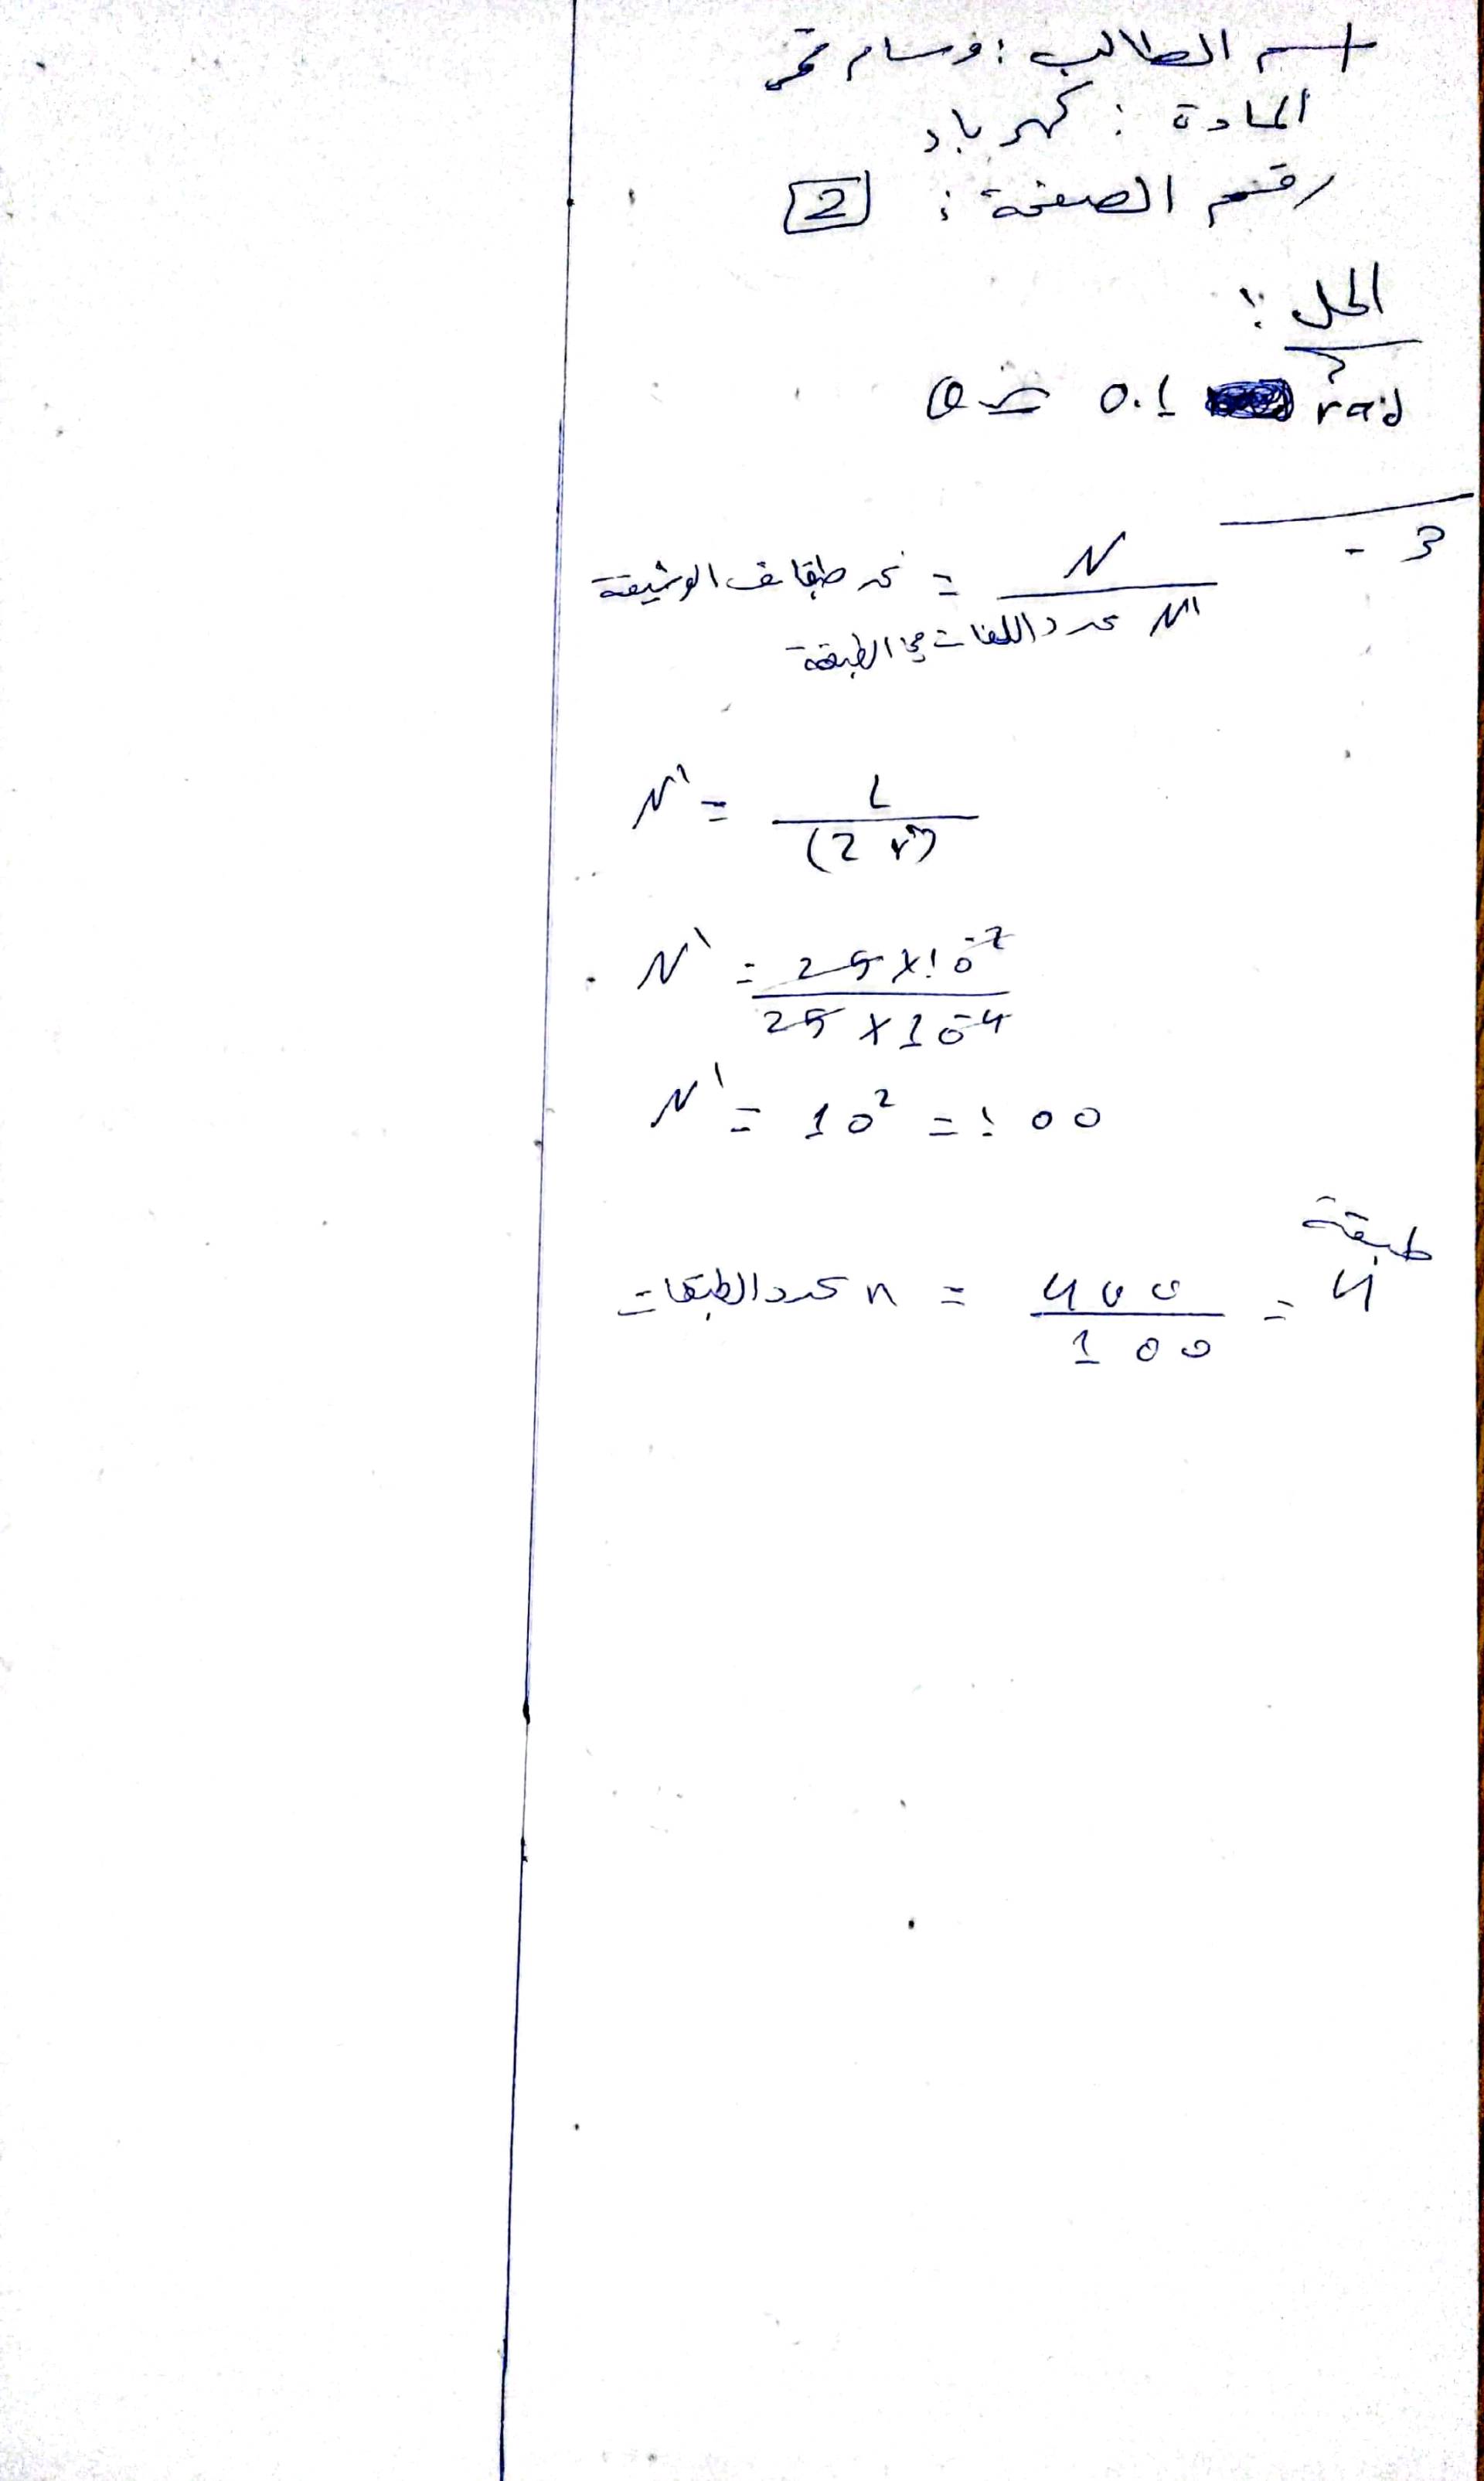 اسم الطالب : وسام قمر
المادة : كهرباء
رقم الصفحة : 2
الحل :
θ = 0.1 rad
3 -
عدد طبقات الوشيعة = N / N' عدد اللفات في الطبقة
N' = L / (2 r')
N' = 25 × 10⁻² / 25 × 10⁻⁴
N' = 10² = 100
n عدد الطبقات = 400 / 100 = 4 طبقة